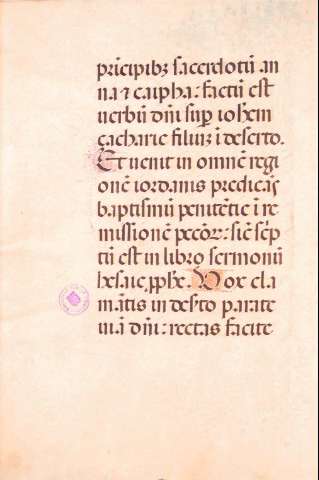 prīcipibꝫ sacerdotū an
na ⁊ caipha: factū est
uerbū dñi sup̄ iohēm
çacharie filiuꝫ ī deserto.
Et uenit in omnē regi
onē iordanis predicās
baptismū penitētie ī re
missionē pecc̄or: sic̄ sc̄p
tū est in libro sermonū
hesaie ꝓphe. Vox cla
mātis in desto parate
uiā dñi: rectas facite